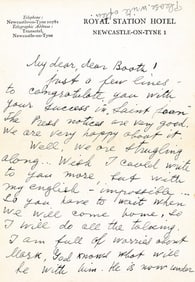 Please write often
Telephone:
Newcastle-on-Tyne 20781
Telegraphic Address:
Transotel,
Newcastle-on-Tyne
ROYAL STATION HOTEL
NEWCASTLE-ON-TYNE 1
My dear, dear Booth!
Just a few lines -
to congratulate you with
your success in Saint Joan
The Press notices are very good.
We are very happy about it
Well. We are strugling
along.. Wish I could write
to you more but with
my english - impossible...
So you have to wait when
we will come home, so
I will do all the talking.
I am full of worries about
Mark, God knows what will
be with him. He is now under